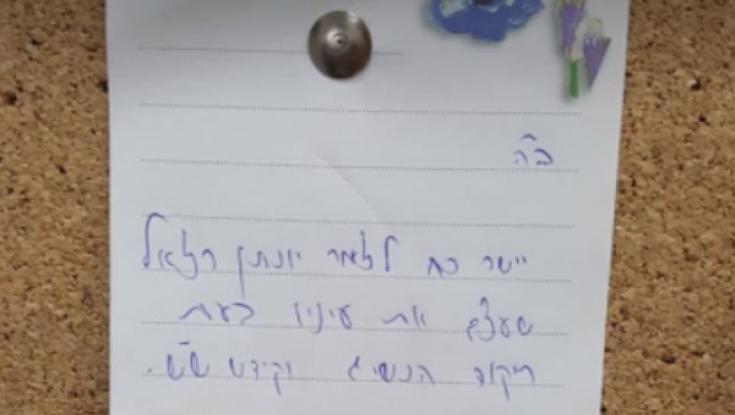 ב"ה
יישר כח לזמר יונתן רזאל
שעצם את עיניו בעת
ריקוד הנשים וקידש ש"ש.